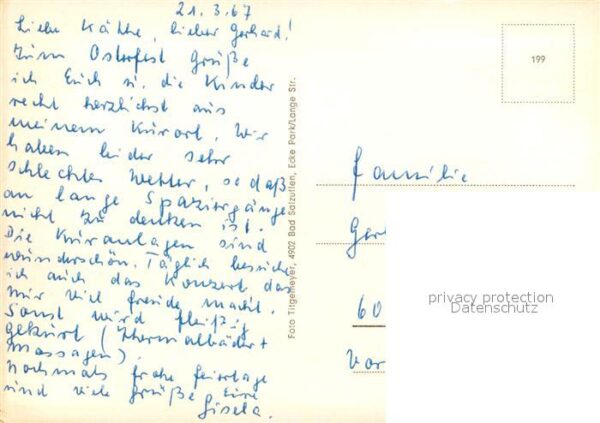 21.3.67
Liebe Käthe, lieber Gerhard!
Zum Osterfest Grüße
ich Euch u. die Kinder
recht herzlichst aus
meinem Kurort. Wir
haben leider sehr
schlechtes Wetter, so daß
an lange Spaziergänge
nicht zu denken ist.
Die Kuranlagen sind
wunderschön. Täglich besuche
ich auch das Konzert, das
mir viel Freude macht.
Sonst wird fleißig
gekurt (Thermalbäder +
Massagen).
Nochmals frohe Feiertage
und viele Grüße Eure
Gisela.
Foto Titgemeyer, 4902 Bad Salzuflen, Ecke Park/Lange Str.
199
Familie
Ger
60
Vor
privacy protection
Datenschutz